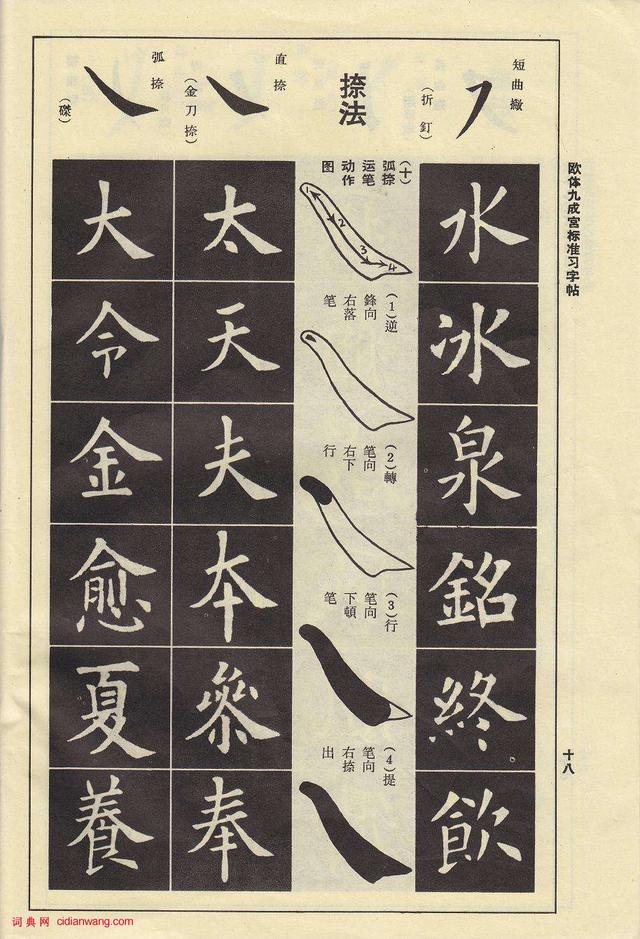 欧体九成宫标准习字帖
十八
短曲撇
（折釘）
水
冰
泉
銘
終
飲
捺法
(十)
弧捺
运笔
动作
图
1
2
3
4
(1)逆
鋒向
右落
笔
(2)轉
笔向
右下
行
(3)行
笔向
下頓
笔
(4)提
笔向
右捺
出
直捺
（金刀捺）
太
天
夫
本
叅
奉
弧捺
（磔）
大
令
金
愈
夏
養
词典网 cidianwang.com